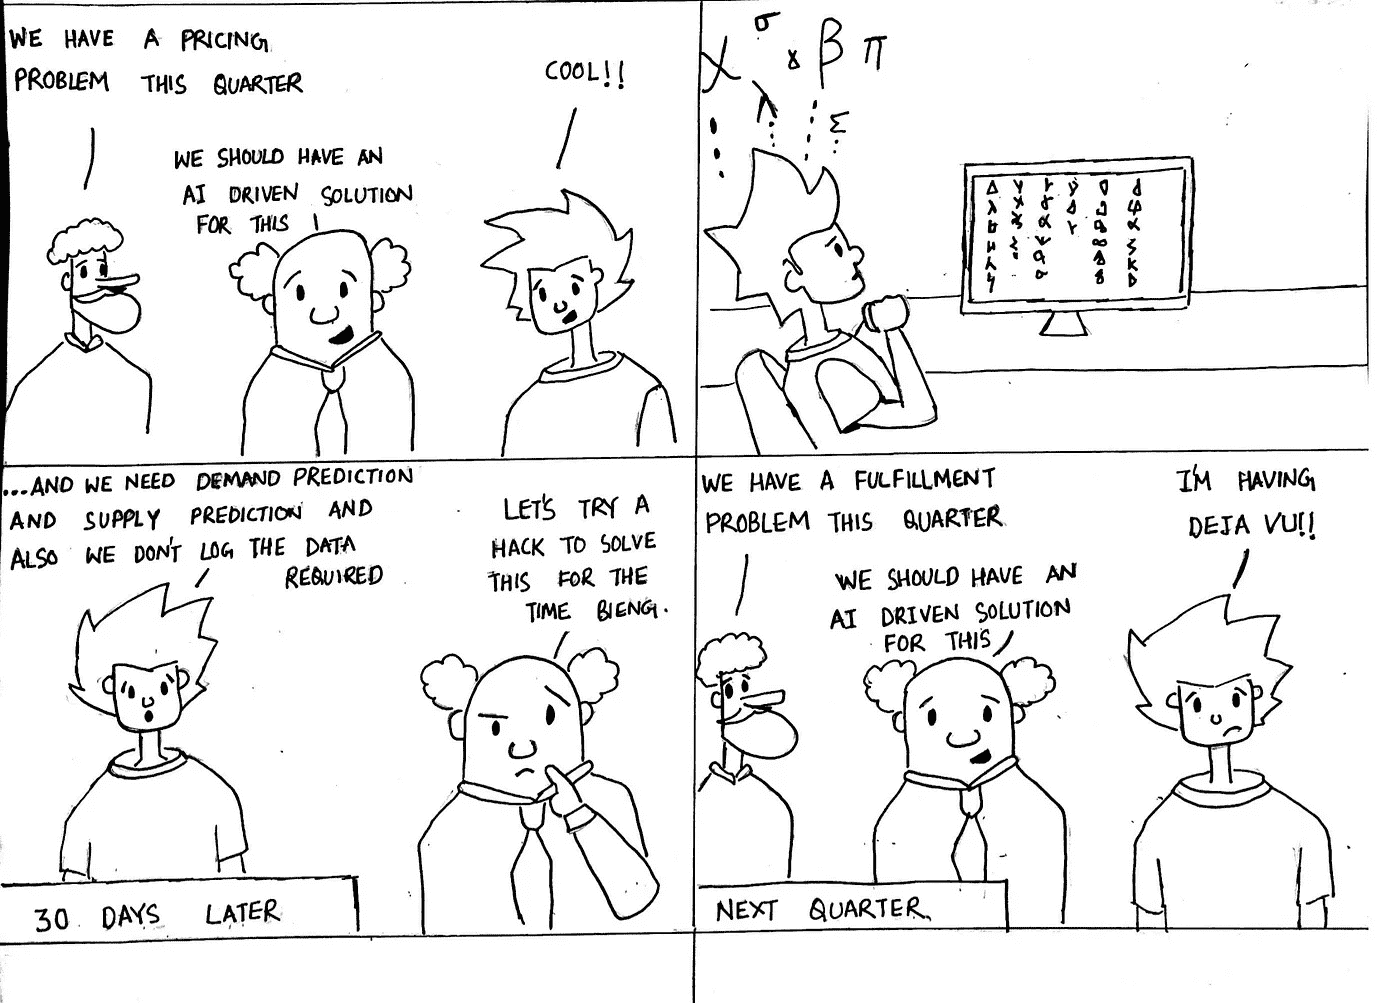 WE HAVE A PRICING
PROBLEM THIS QUARTER
WE SHOULD HAVE AN
AI DRIVEN SOLUTION
FOR THIS
COOL!!
σ
γ β π
Σ
...AND WE NEED DEMAND PREDICTION
AND SUPPLY PREDICTION AND
ALSO WE DON'T LOG THE DATA
REQUIRED
LET'S TRY A
HACK TO SOLVE
THIS FOR THE
TIME BIENG.
30 DAYS LATER
WE HAVE A FULFILLMENT
PROBLEM THIS QUARTER
WE SHOULD HAVE AN
AI DRIVEN SOLUTION
FOR THIS
I'M HAVING
DEJA VU!!
NEXT QUARTER.